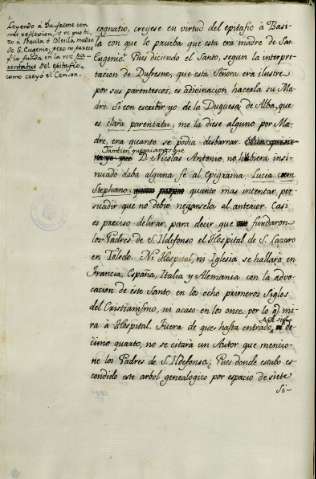 Leyendo à Dufresne con
mas reflexion, se ve que tu-
vo à Basila ò Blesila, madre
de S. Eugenio, pero no parece
cognatio, creyese en virtud del epitafio à Basi-
la con que le prueba que esta era madre de San
Eugenio. Pues diciendo el Santo, segun la interpre-
tacion de Dufresne, que esta Señora era ilustre
por sus parentescos, es adivinacion hacerla su Ma-
dre. Si con escribir yo de la Duquesa de Alba, que
es clara parentatu, me la diese alguno por Ma-
dre, era quanto se podia desbarrar.
Tambien
D. Nicolas Antonio, no hubiera insi-
nuado daba alguna fe al Epigrama, Lucia
Stephano, quanto mas intentar per-
suadir que no debio negarsela al anterior. Casi
es preciso delirar, para decir que fundaron
los Padres de S. Ildefonso el Hospital de S. Lazaro
en Toledo. Ni Hospital, ni Iglesia se hallará en
Francia, España, Italia y Alemania con la advo-
cacion de este Santo en los ocho primeros Siglos
del Cristianismo, ni acaso en los once, por lo q mi-
ra à Hospital. Fuera de que hasta entrado el
decimo quarto, no se citará un Autor que mencio-
ne los Padres de S. Ildefonso. Pues donde estubo es-
condido este arbol genealogico por espacio de siete
Si-